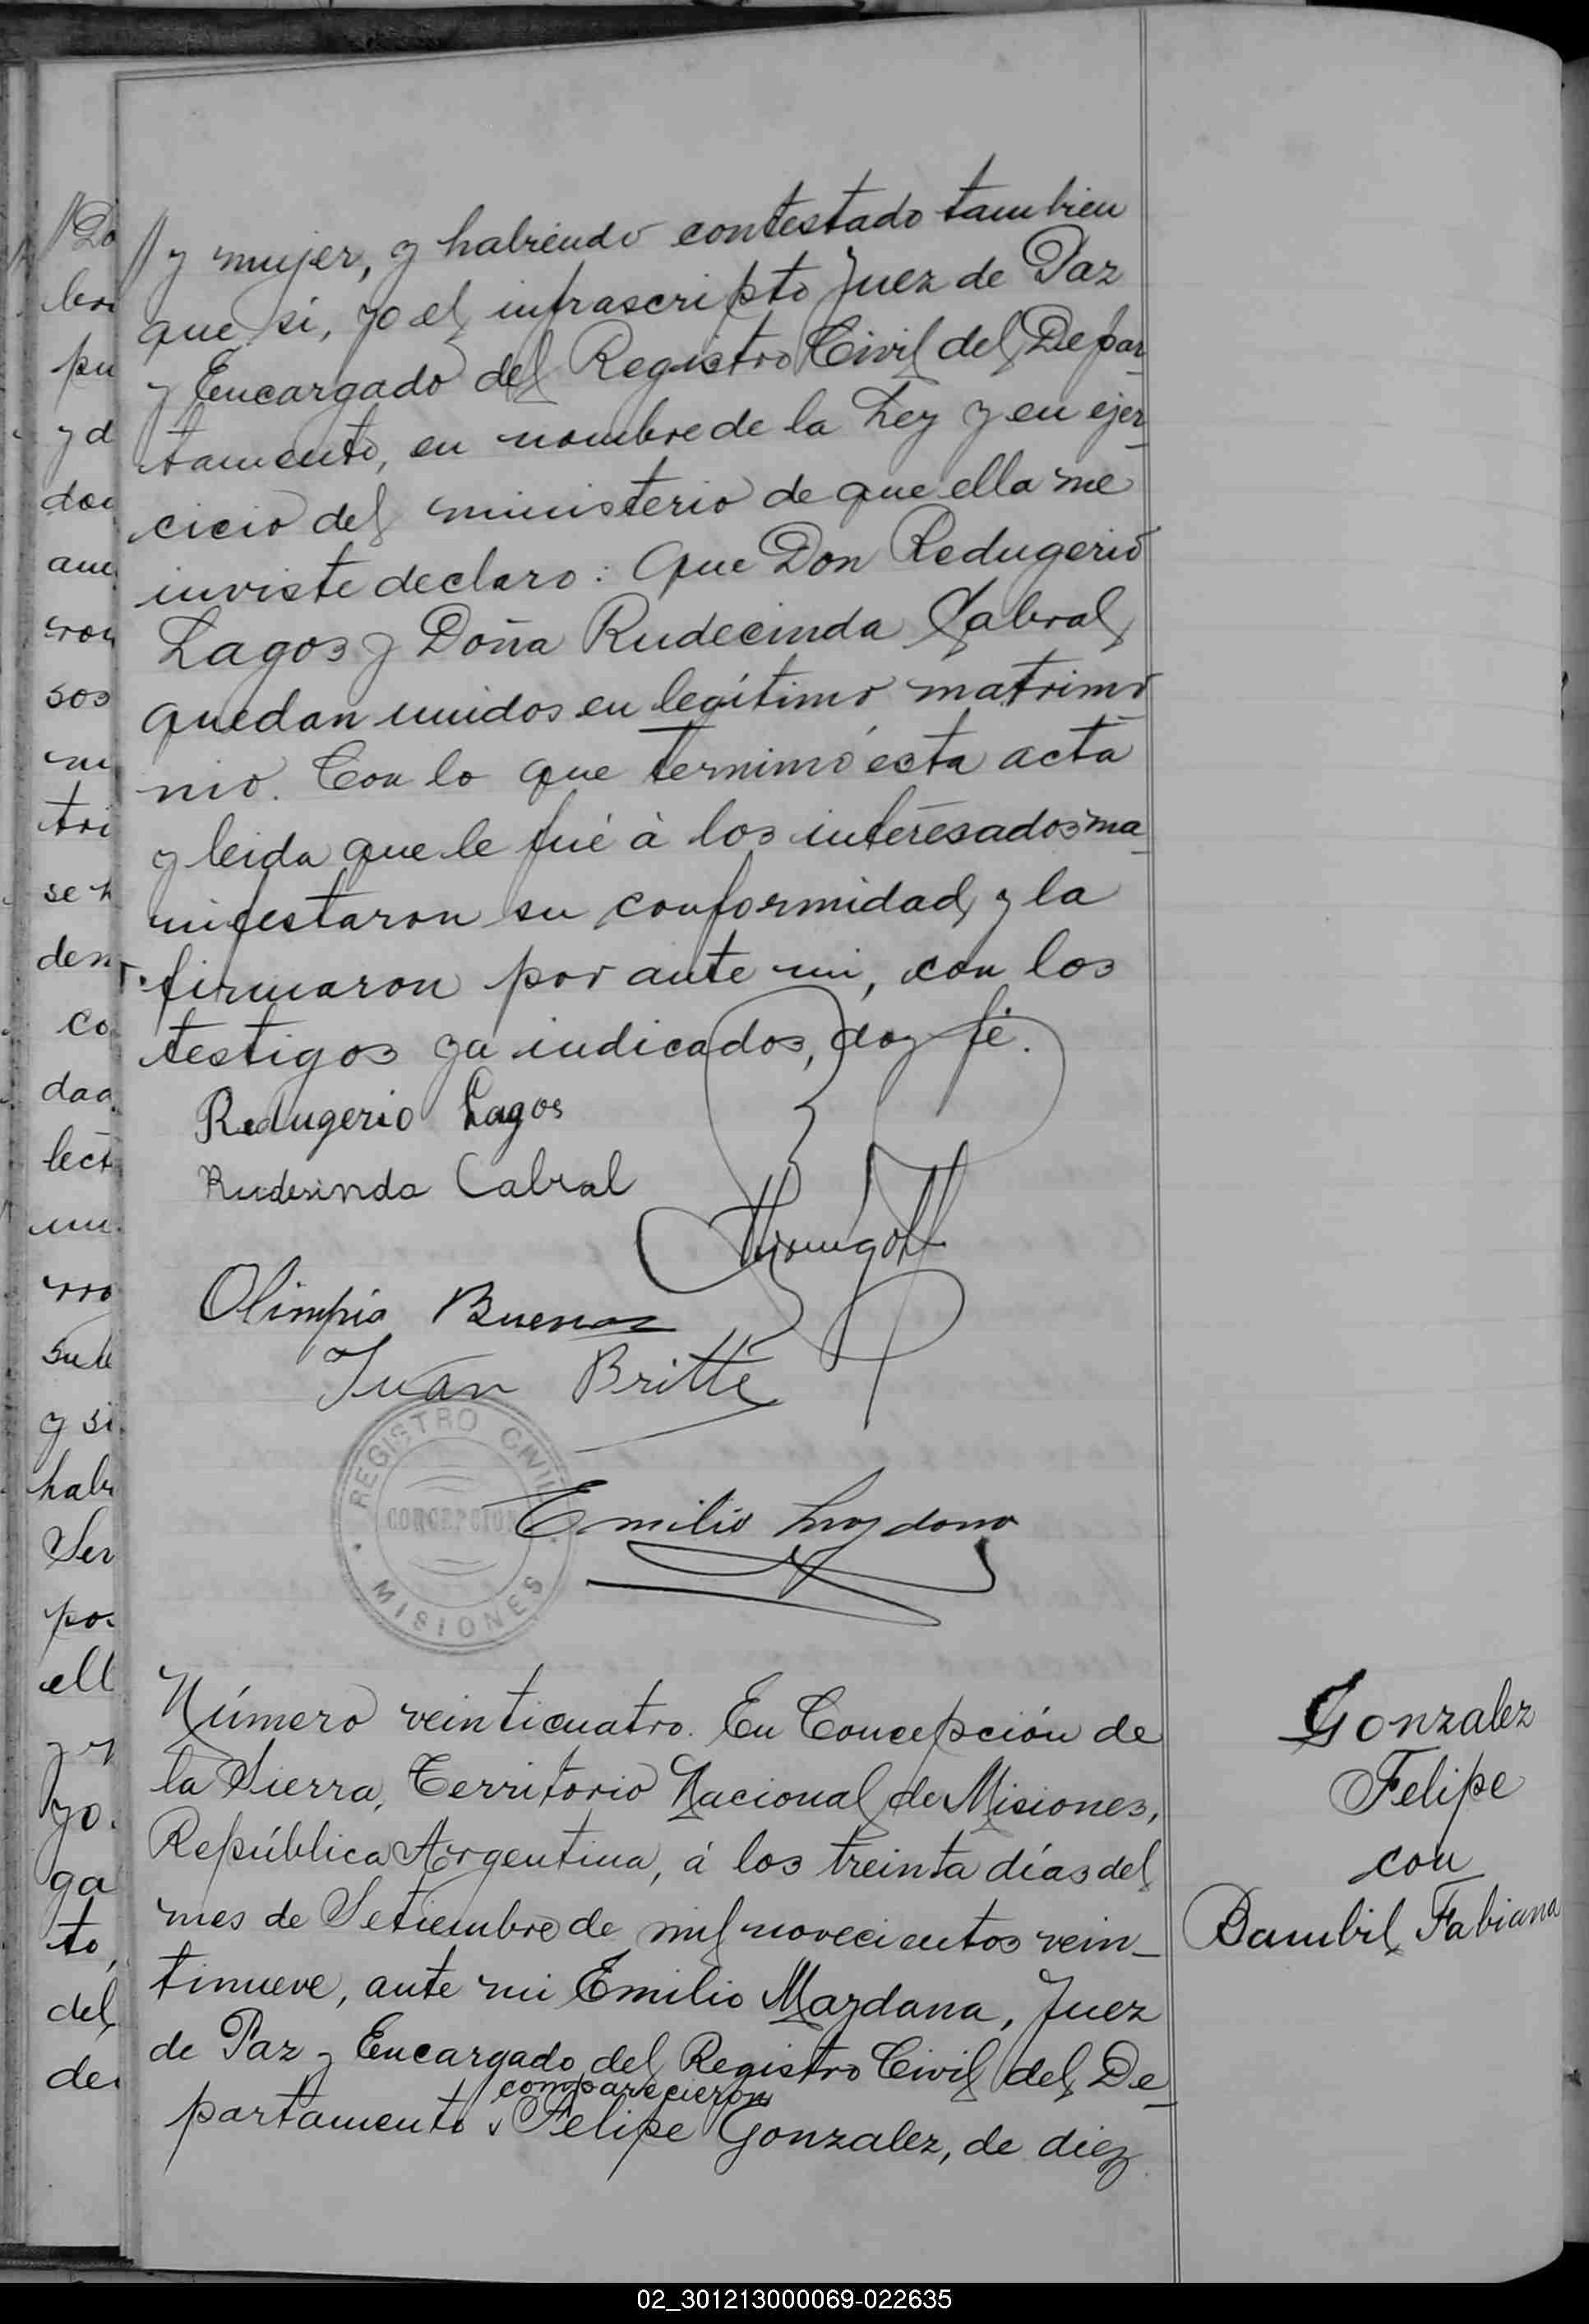 // y mujer, y habiendo contestado tambien
que si, yo el infrascripto Juez de Paz
y Encargado del Registro Civil del Depar_
tamento, en nombre de la Ley y en ejer_
cicio del ministerio de que ella me
inviste declaro: Que Don Redugerio
Lagos y Doña Rudecinda Cabral
quedan unidos en legítimo matrimo_
nio. Con lo que terminó esta acta
y leida que le fué à los interesados ma_
nifestaron su conformidad y la
firmaron por ante mi, con los
testigos ya indicados, doy fé.
Redugerio Lagos
Rudesinda Cabral
Olimpia
Juan Britte
REGISTRO CIVIL
CONCEPCION
MISIONES
Emilio
Número veinticuatro. En Concepción de
la Sierra, Territorio Nacional de Misiones,
República Argentina, á los treinta días del
mes de Setiembre de mil novecientos vein_
tinueve, ante mi Emilio Maydana, Juez
de Paz y Encargado del Registro Civil del De_
comparecieron
partamento Felipe Gonzalez, de diez
Gonzalez
Felipe
con
Bambil Fabiana
//Do
bre
pu
y d
don
ron
sos
tri
se h
den
co
lect
rro
y si
habi
Ser
pos
ell
yo.
ga
to,
del
de
02_301213000069-022635